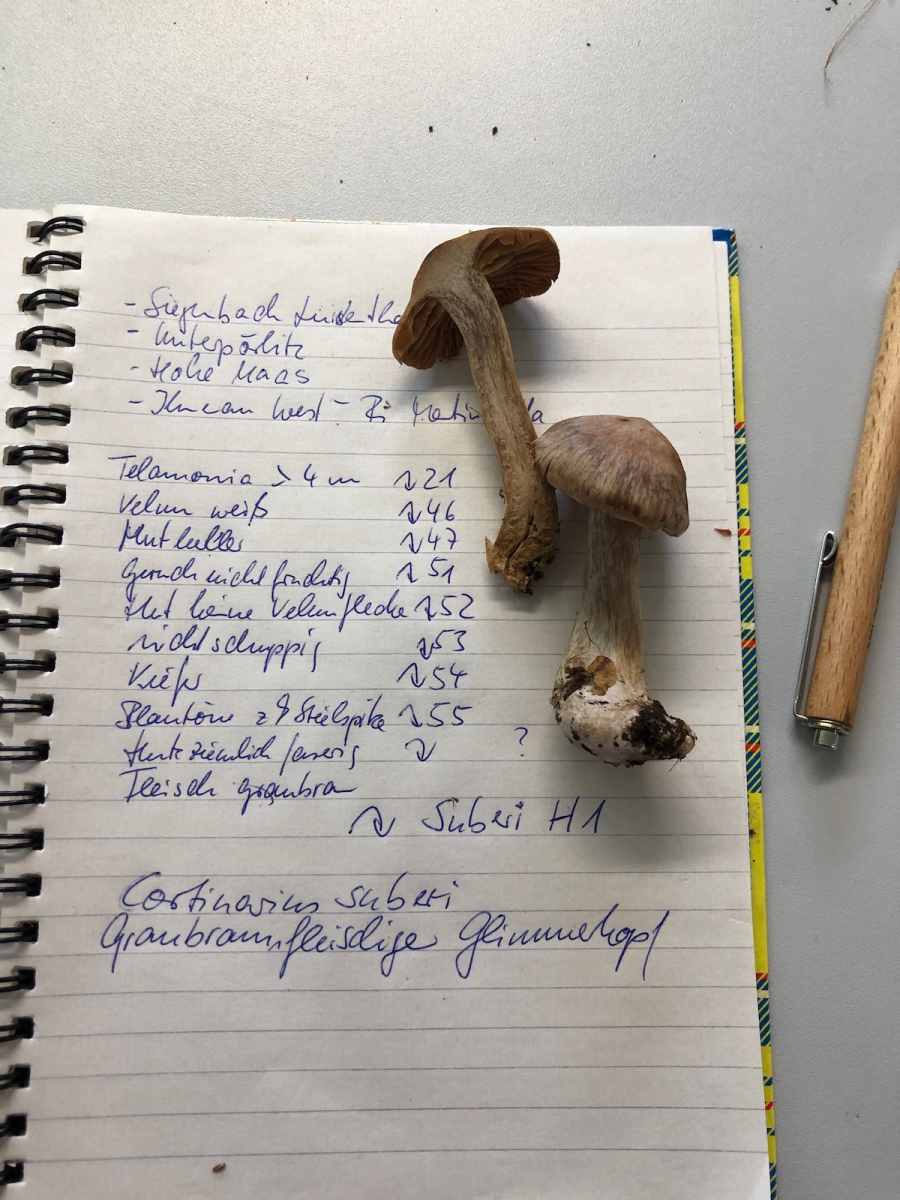 - Siegenbach
- Unterpörlitz
- Hohe Maas
- Ilmenau West -
Telamonia > 4 cm ↝ 21
Velum weiß ↝ 46
Hut heller ↝ 47
Geruch nicht fruchtig ↝ 51
Hut keine Velumflecke ↝ 52
nicht schuppig ↝ 53
Kiefer ↝ 54
Blautöne Stielspitze ↝ 55
Hut ziemlich faserig ↝ ?
Fleisch graubraun
↝ Suberi H1
Cortinarius suberi
Graubraunfleischiger Glimmerkopf